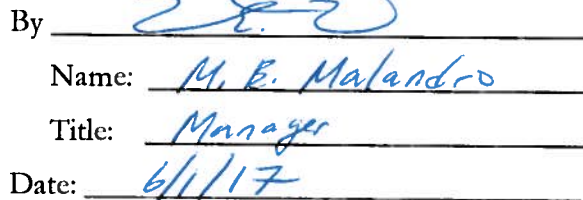 By
Name: M. E. Malandro
Title: Manager
Date: 6/1/17